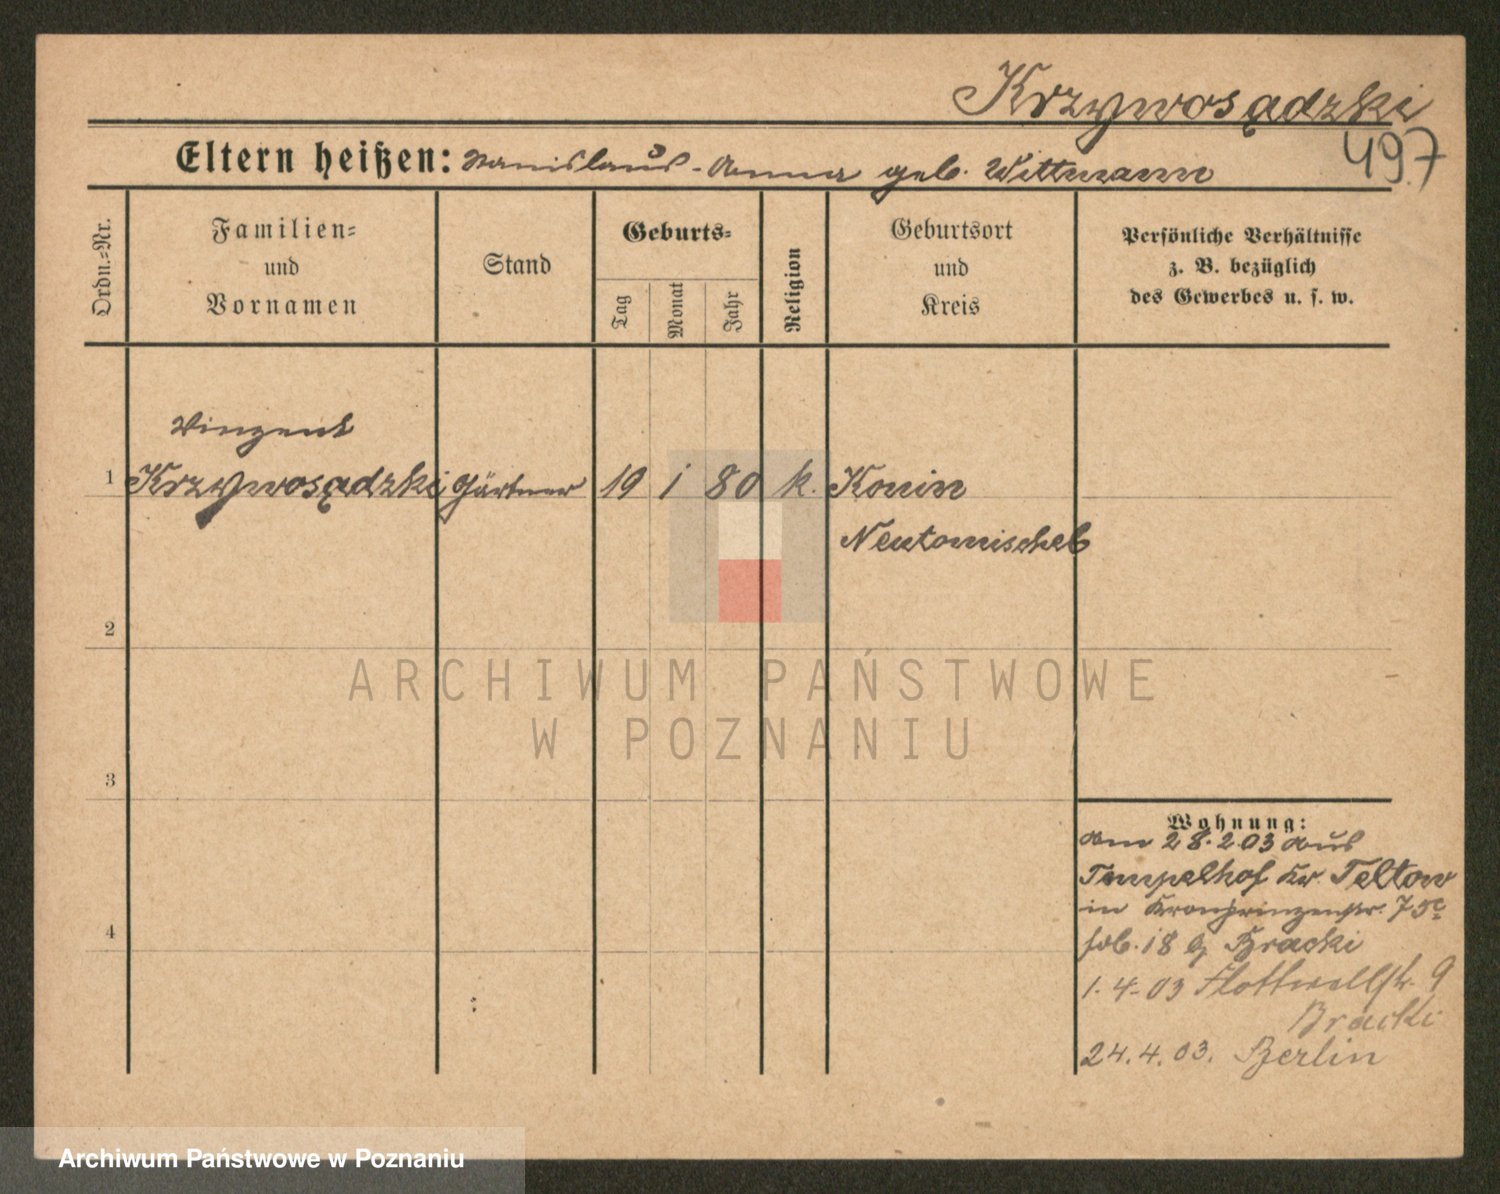 Krzywosądzki
497
Eltern heißen: Stanislaus - Anna geb. Wittmann
Ordn.-Nr.
Familien-
und
Vornamen
Stand
Geburts-
Tag
Monat
Jahr
Religion
Geburtsort
und
Kreis
Persönliche Verhältnisse
z. B. bezüglich
des Gewerbes u. s. w.
Vinzent
1 Krzywosądzki Gärtner 19 1 80 k. Konin
Neutomischel
2
ARCHIWUM PAŃSTWOWE
W POZNANIU
3
Wohnung:
Am 28.2.03 aus
Tempelhof Kr. Teltow
in Kronprinzenstr. 75c
18 Bracki
1.4.03 Flottwellstr. 9
Bracki
24.4.03. Berlin
4
Archiwum Państwowe w Poznaniu